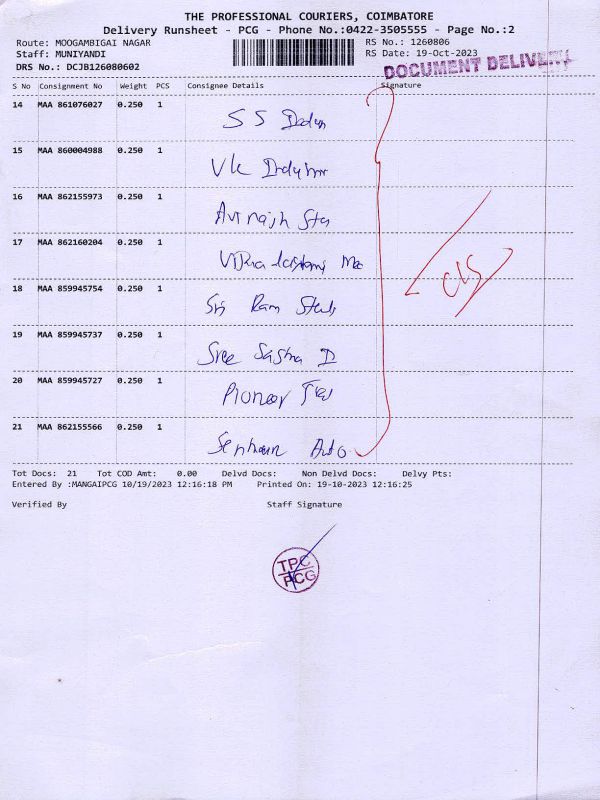 THE PROFESSIONAL COURIERS, COIMBATORE
Delivery Runsheet - PCG - Phone No.:0422-3505555 - Page No.:2
Route: MOOGAMBIGAI NAGAR RS No.: 1260806
Staff: MUNIYANDI RS Date: 19-Oct-2023
DRS No.: DCJB126080602
DOCUMENT DELIVERY
S No Consignment No Weight PCS Consignee Details Signature
14 MAA 861076027 0.250 1 S S
15 MAA 860004988 0.250 1
16 MAA 862155973 0.250 1 Avinash
17 MAA 862160204 0.250 1
18 MAA 859945754 0.250 1 Sri Ram
19 MAA 859945737 0.250 1 Sree Sastha D
20 MAA 859945727 0.250 1 Pioneer
21 MAA 862155566 0.250 1 Auto
Tot Docs: 21 Tot COD Amt: 0.00 Delvd Docs: Non Delvd Docs: Delvy Pts:
Entered By :MANGAIPCG 10/19/2023 12:16:18 PM Printed On: 19-10-2023 12:16:25
Verified By Staff Signature
TPC
PCG